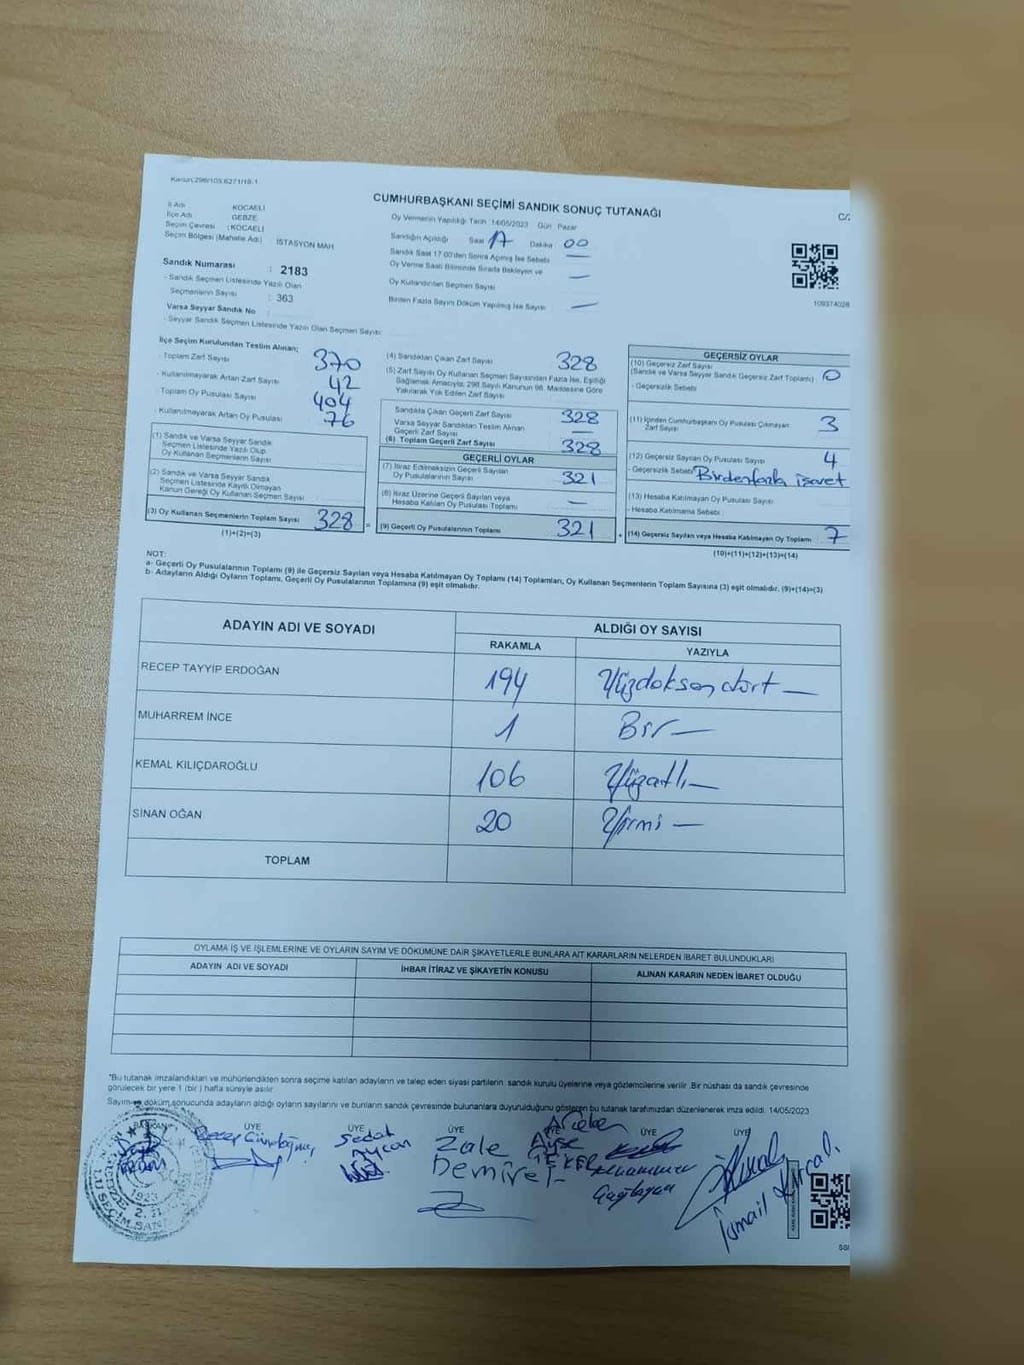 Kanun:298/105,6271/19-1
CUMHURBAŞKANI SEÇİMİ SANDIK SONUÇ TUTANAĞI
C/2
İl Adı : KOCAELİ
İlçe Adı : GEBZE
Seçim Çevresi : KOCAELİ
Seçim Bölgesi (Mahalle Adı) : İSTASYON MAH
Sandık Numarası : 2183
- Sandık Seçmen Listesinde Yazılı Olan
Seçmenlerin Sayısı : 363
Varsa Seyyar Sandık No :
- Seyyar Sandık Seçmen Listesinde Yazılı Olan Seçmen Sayısı:
Oy Vermenin Yapıldığı Tarih : 14/05/2023 Gün : Pazar
Sandığın Açıldığı Saat 17 Dakika 00
Sandık Saat 17:00'den Sonra Açılmış İse Sebebi —
Oy Verme Saati Bitiminde Sırada Bekleyen ve
Oy Kullandırılan Seçmen Sayısı —
Birden Fazla Sayım Döküm Yapılmış İse Sayısı —
109374026
İlçe Seçim Kurulundan Teslim Alınan;
- Toplam Zarf Sayısı 370
- Kullanılmayarak Artan Zarf Sayısı 42
Toplam Oy Pusulası Sayısı 404
- Kullanılmayarak Artan Oy Pusulası 76
(1) Sandık ve Varsa Seyyar Sandık
Seçmen Listesinde Yazılı Olup
Oy Kullanan Seçmenlerin Sayısı
(2) Sandık ve Varsa Seyyar Sandık
Seçmen Listesinde Kayıtlı Olmayan
Kanun Gereği Oy Kullanan Seçmen Sayısı
(3) Oy Kullanan Seçmenlerin Toplam Sayısı 328
(1)+(2)=(3)
(4) Sandıktan Çıkan Zarf Sayısı 328
(5) Zarf Sayısı Oy Kullanan Seçmen Sayısından Fazla İse, Eşitliği
Sağlamak Amacıyla; 298 Sayılı Kanunun 98. Maddesine Göre
Yakılarak Yok Edilen Zarf Sayısı
Sandıkta Çıkan Geçerli Zarf Sayısı 328
Varsa Seyyar Sandıktan Teslim Alınan
Geçerli Zarf Sayısı —
(6) Toplam Geçerli Zarf Sayısı 328
GEÇERLİ OYLAR
(7) İtiraz Edilmeksizin Geçerli Sayılan
Oy Pusulalarının Sayısı 321
(8) İtiraz Üzerine Geçerli Sayılan veya
Hesaba Katılan Oy Pusulası Toplamı —
= (9) Geçerli Oy Pusulalarının Toplamı 321
GEÇERSİZ OYLAR
(10) Geçersiz Zarf Sayısı
(Sandık ve Varsa Seyyar Sandık Geçersiz Zarf Toplamı) 0
- Geçersizlik Sebebi
(11) İçinden Cumhurbaşkanı Oy Pusulası Çıkmayan
Zarf Sayısı 3
(12) Geçersiz Sayılan Oy Pusulası Sayısı 4
- Geçersizlik Sebebi Birdenfazla işaret
(13) Hesaba Katılmayan Oy Pusulası Sayısı
- Hesaba Katılmama Sebebi :
+ (14) Geçersiz Sayılan veya Hesaba Katılmayan Oy Toplamı 7
(10)+(11)+(12)+(13)=(14)
NOT:
a- Geçerli Oy Pusulalarının Toplamı (9) ile Geçersiz Sayılan veya Hesaba Katılmayan Oy Toplamı (14) Toplamları, Oy Kullanan Seçmenlerin Toplam Sayısına (3) eşit olmalıdır. (9)+(14)=(3)
b- Adayların Aldığı Oyların Toplamı, Geçerli Oy Pusulalarının Toplamına (9) eşit olmalıdır.
ADAYIN ADI VE SOYADI
ALDIĞI OY SAYISI
RAKAMLA YAZIYLA
RECEP TAYYİP ERDOĞAN 194 Yüzdoksandört —
MUHARREM İNCE 1 Bir —
KEMAL KILIÇDAROĞLU 106 Yüzaltı —
SİNAN OĞAN 20 Yirmi —
TOPLAM
OYLAMA İŞ VE İŞLEMLERİNE VE OYLARIN SAYIM VE DÖKÜMÜNE DAİR ŞİKAYETLERLE BUNLARA AİT KARARLARIN NELERDEN İBARET BULUNDUKLARI
ADAYIN ADI VE SOYADI İHBAR İTİRAZ VE ŞİKAYETİN KONUSU ALINAN KARARIN NEDEN İBARET OLDUĞU
"Bu tutanak imzalandıktan ve mühürlendikten sonra seçime katılan adayların ve talep eden siyasi partilerin sandık kurulu üyelerine veya gözlemcilerine verilir .Bir nüshası da sandık çevresinde
görülecek bir yere 1 (bir ) hafta süreyle asılır
Sayım ve döküm sonucunda adayların aldığı oyların sayılarını ve bunların sandık çevresinde bulunanlara duyurulduğunu gösteren bu tutanak tarafımızdan düzenlenerek imza edildi. 14/05/2023
BAŞKAN ÜYE ÜYE ÜYE ÜYE ÜYE
Recep Gündoğmuş
Sedat
Aycan
Zale
Demirel
Ayşe
Çağlayan
İsmail Kıral
1923